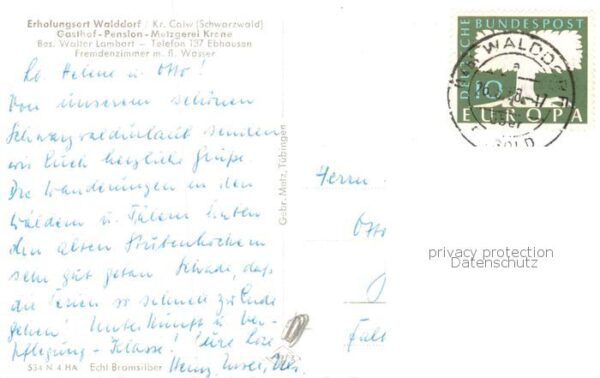 Erholungsort Walddorf / Kr. Calw (Schwarzwald)
Gasthof - Pension - Metzgerei Krone
Bes. Walter Lambart - Telefon 137 Ebhausen
Fremdenzimmer m. fl. Wasser
Lb. Helene u. Otto!
Von unserem schönen
Schwarzwaldurlaub senden
wir Euch herzliche Grüße.
Die Wanderungen in den
Wäldern u. Tälern haben
den alten Stubenhockern
sehr gut getan. Schade, daß
die Ferien so schnell zu Ende
gehen! Unterkunft u. Ver-
pflegung - Klasse! Eure
Heinz
534 N 4 HA Echt Bromsilber
Gebr. Metz, Tübingen
DEUTSCHE BUNDESPOST
10
EUROPA
WALDDORF
Herrn
Otto
privacy protection
Datenschutz